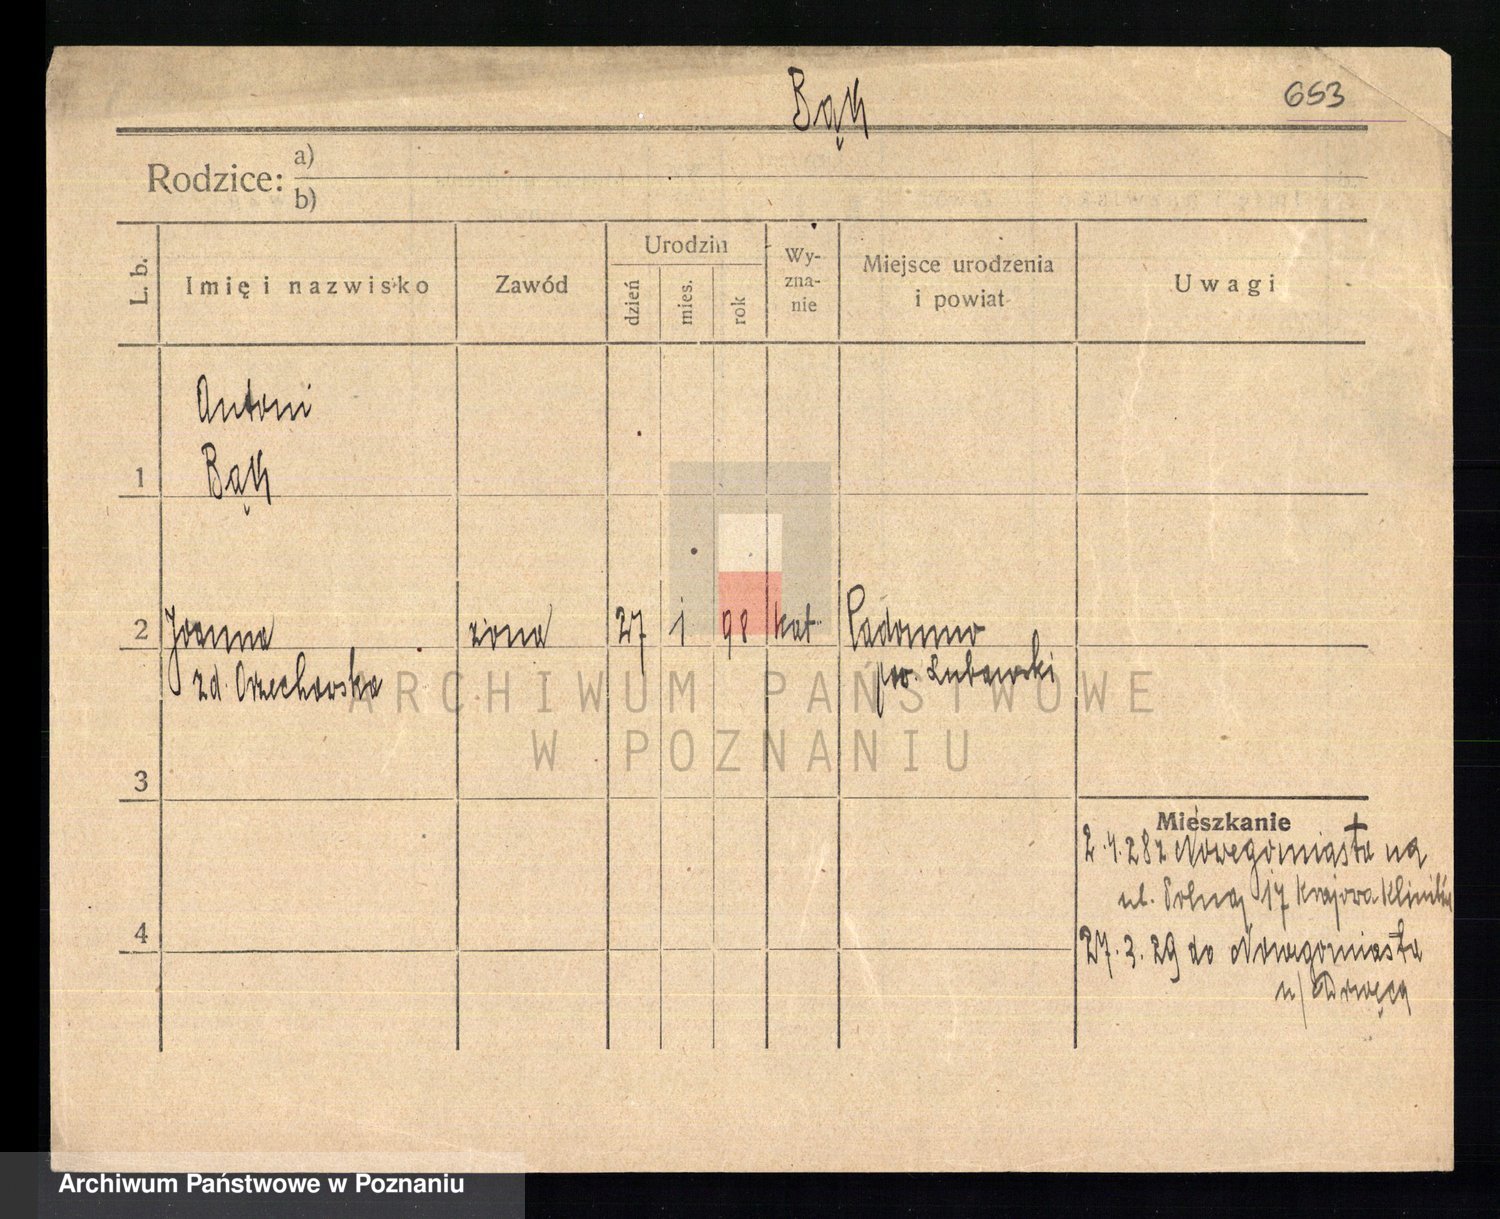 Bąk
653
Rodzice:
a)
b)
L. b.
Imię i nazwisko
Zawód
Urodzin
dzień
mies.
rok
Wy-
zna-
nie
Miejsce urodzenia
i powiat
Uwagi
Antoni
1 Bąk
2 Joanna żona 27 1 98 kat.
zd. Orzechowska pow. Lubawski
ARCHIWUM PAŃSTWOWE
W POZNANIU
3
Mieszkanie
28 z Nowegomiasta na
ul. Polnej 17 Krajowa Klinika
4
27.3.29 do Nowegomiasta
n/ Drwęcą
Archiwum Państwowe w Poznaniu